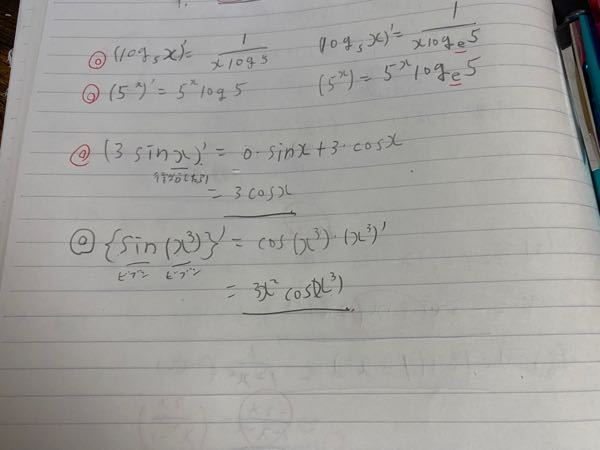 ◎ (log₅x)' = 1/(x log 5)   (log₅x)' = 1/(x logₑ5)
◎ (5ˣ)' = 5ˣ log 5   (5ˣ) = 5ˣ logₑ5
◎ (3 sinx)' = 0・sinx + 3・cosx
= 3cosx
◎ {sin(x³)}' = cos(x³)・(x³)'
ビブン ビブン
= 3x² cos(x³)